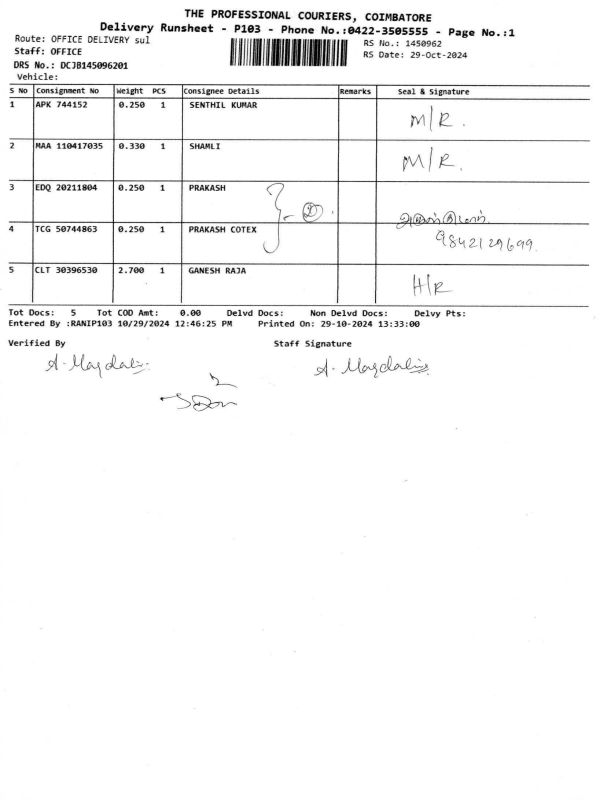 THE PROFESSIONAL COURIERS, COIMBATORE
Delivery Runsheet - P103 - Phone No.:0422-3505555 - Page No.:1
Route: OFFICE DELIVERY sul
RS No.: 1450962
Staff: OFFICE
RS Date: 29-Oct-2024
DRS No.: DCJB145096201
Vehicle:
S No Consignment No Weight PCS Consignee Details Remarks Seal & Signature
1 APK 744152 0.250 1 SENTHIL KUMAR M/R.
2 MAA 110417035 0.330 1 SHAMLI M/R.
3 EDQ 20211804 0.250 1 PRAKASH
2
4 TCG 50744863 0.250 1 PRAKASH COTEX 9842129699
5 CLT 30396530 2.700 1 GANESH RAJA H/R
Tot Docs: 5 Tot COD Amt: 0.00 Delvd Docs: Non Delvd Docs: Delvy Pts:
Entered By :RANIP103 10/29/2024 12:46:25 PM Printed On: 29-10-2024 13:33:00
Verified By Staff Signature